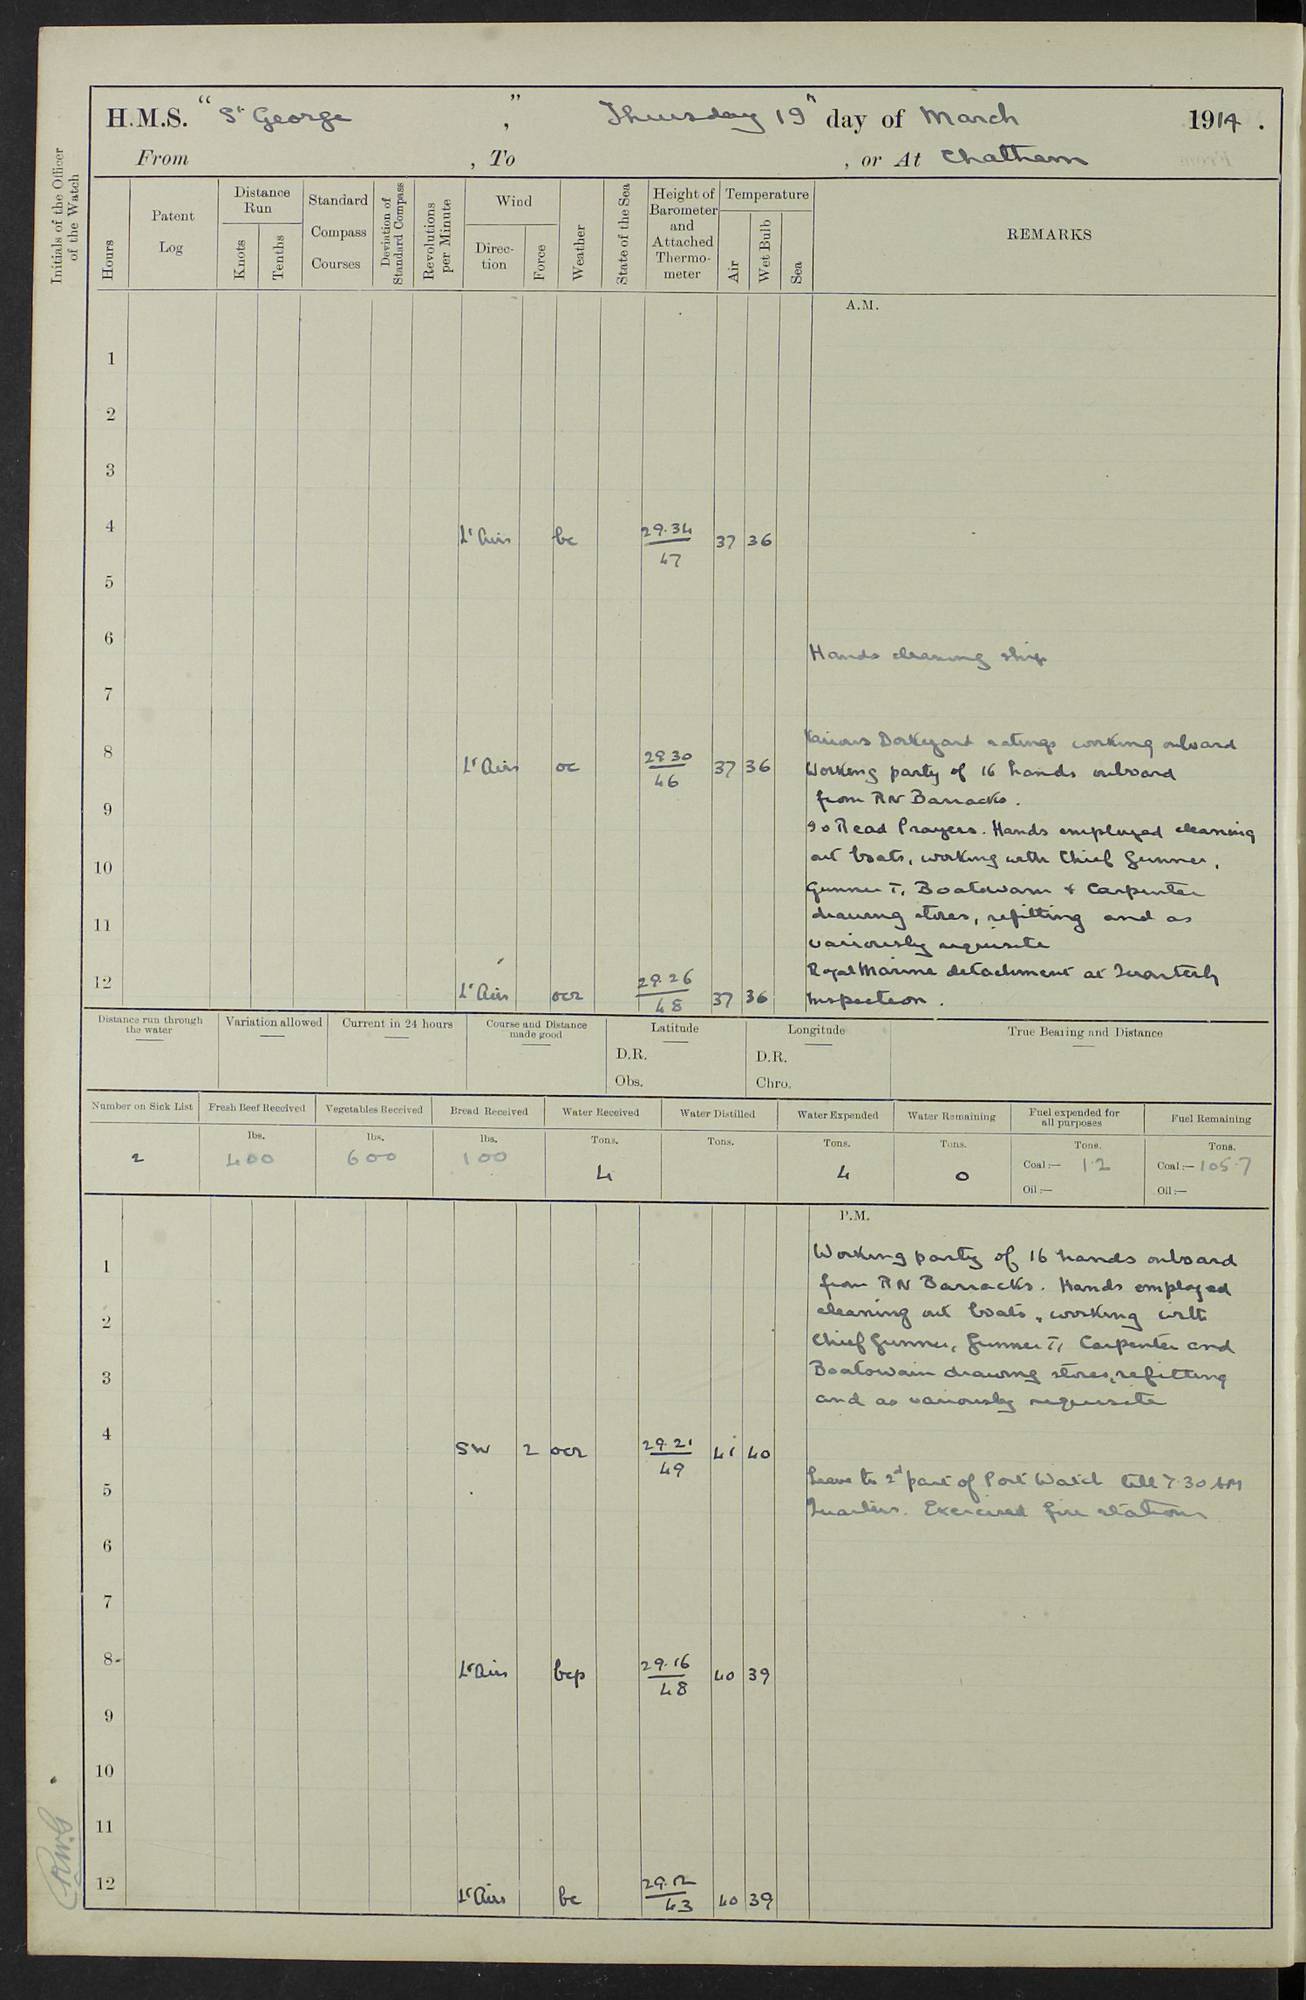 H.M.S. "St George", Thursday 19th day of March 1914.
From , To , or At Chatham
Initials of the Officer of the Watch
Hours
Patent Log
Distance Run
Knots
Tenths
Standard Compass Courses
Deviation of Standard Compass
Revolutions per Minute
Wind
Direction
Force
Weather
State of the Sea
Height of Barometer and Attached Thermometer
Temperature
Air
Wet Bulb
Sea
REMARKS
A.M.
1
2
3
4 Lt Airs bc 29.34/47 37 36
5
6
Hands cleaning ship
7
Various Dockyard ratings working onboard
8 Lt Airs oc 29.30/46 37 36 Working party of 16 hands onboard
from RN Barracks.
9
9.0 Read Prayers. Hands employed cleaning
out boats, working with Chief Gunner,
10
Gunner T, Boatswain & Carpenter
drawing stores, refitting and as
11
variously requisite
Royal Marine detachment at Quarterly
12 Lt Airs ocr 29.26/48 37 36 Inspection.
Distance run through the water
Variation allowed
Current in 24 hours
Course and Distance made good
Latitude
D.R.
Obs.
Longitude
D.R.
Chro.
True Bearing and Distance
Number on Sick List
2
Fresh Beef Received
lbs.
400
Vegetables Received
lbs.
600
Bread Received
lbs.
100
Water Received
Tons.
4
Water Distilled
Tons.
Water Expended
Tons.
4
Water Remaining
Tons.
0
Fuel expended for all purposes
Tons.
Coal:— 1.2
Oil:—
Fuel Remaining
Tons.
Coal:— 105.7
Oil:—
P.M.
Working party of 16 hands onboard
1
from RN Barracks. Hands employed
cleaning out boats, working with
2
Chief Gunner, Gunner T, Carpenter and
Boatswain drawing stores, refitting
3
and as variously requisite
4 SW 2 ocr 29.21/49 41 40
Leave to 2d part of Port Watch till 7.30 AM
5
Quarters. Exercised fire stations
6
7
8 Lt Airs bcp 29.16/48 40 39
9
10
11
12 Lt Airs bc 29.12/43 40 39